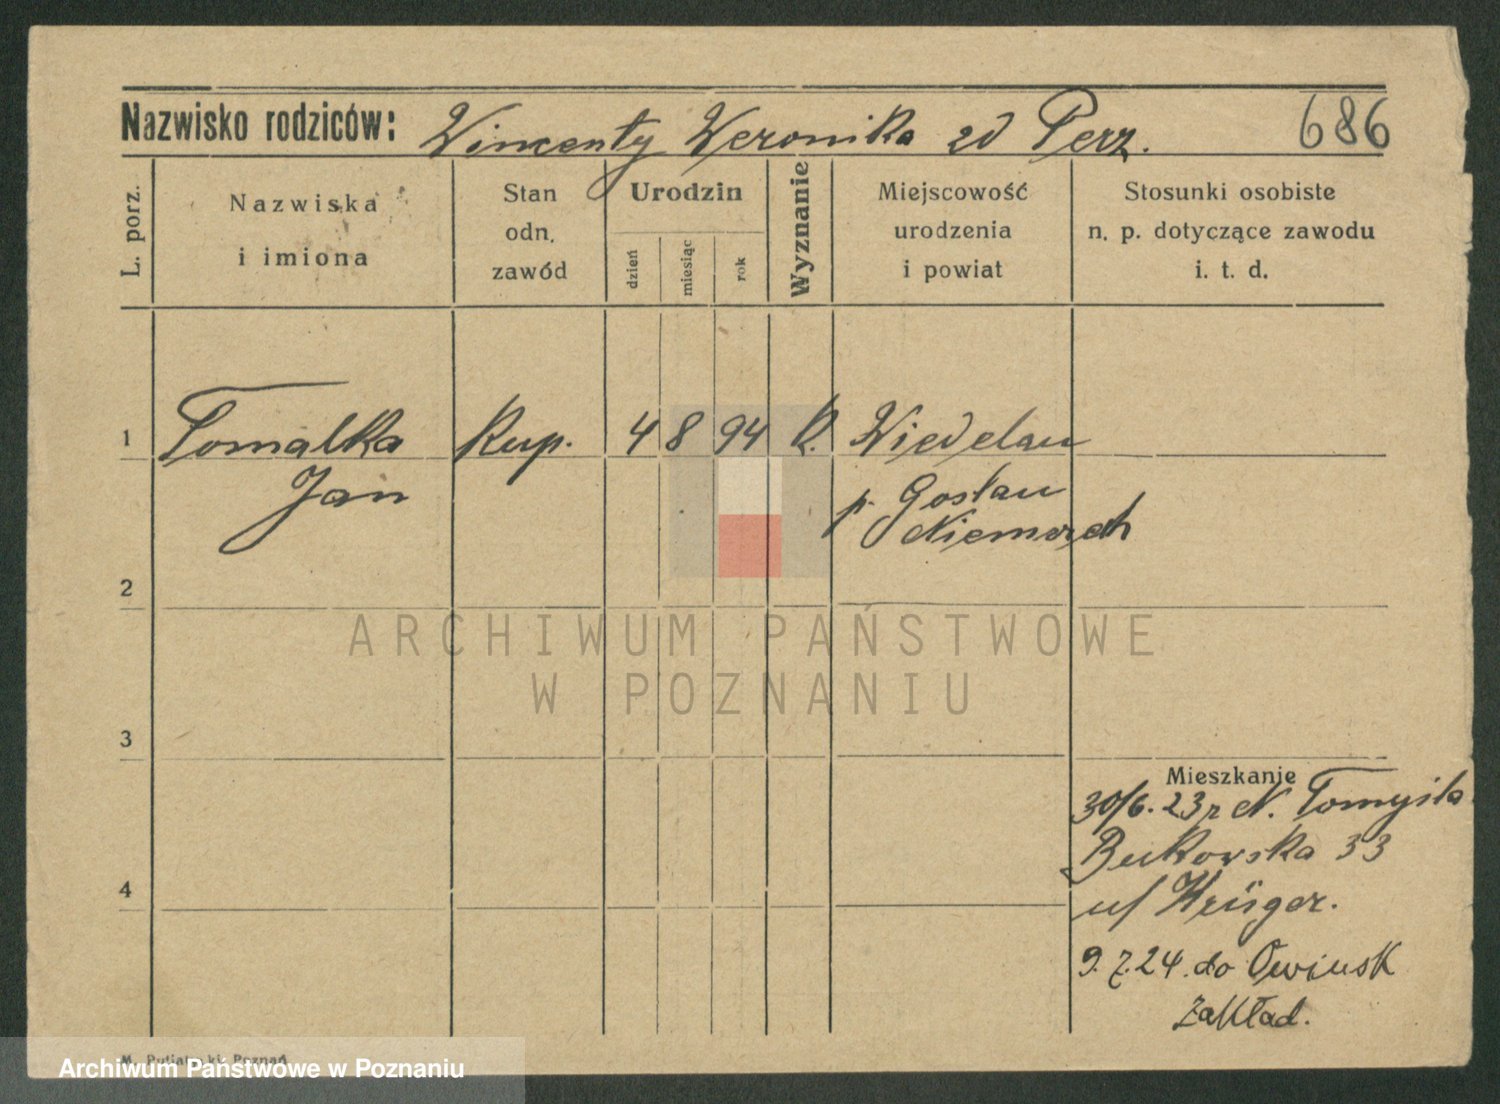 Nazwisko rodziców: Wincenty Weronika zd Perz. 686
L. porz.
Nazwiska i imiona
Stan odn. zawód
Urodzin
dzień miesiąc rok
Wyznanie
Miejscowość urodzenia i powiat
Stosunki osobiste n. p. dotyczące zawodu i. t. d.
1 Tomalka Kup. 4 8 94 k. Wiedelau
Jan p. Goslau
Niemczech
2
ARCHIWUM PAŃSTWOWE
W POZNANIU
3
Mieszkanie
30/6. 23 z N. Tomyśla
Bukowska 33
u/ Krüger.
4
9.7.24. do Owinsk
Zakład.
M. Putiatycki Poznań
Archiwum Państwowe w Poznaniu